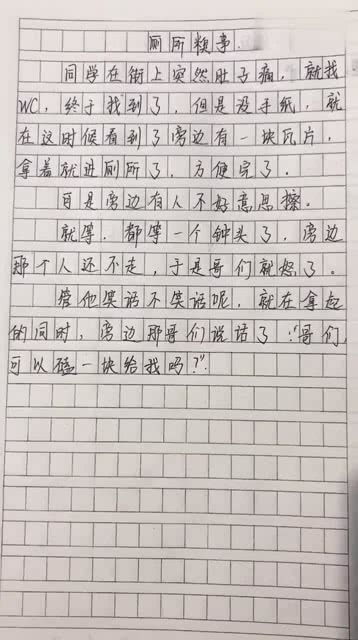 厕所糗事.
同学在街上突然肚子痛，就找
WC，终于找到了，但是没手纸，就
在这时候看到了旁边有一块瓦片，
拿着就进厕所了，方便完了。
可是旁边有人不好意思擦。
就等，都等一个钟头了，旁边
那个人还不走，于是哥们就怒了。
管他笑话不笑话呢，就在拿起
的同时，旁边那哥们说话了："哥们，
可以磕一块给我吗？"